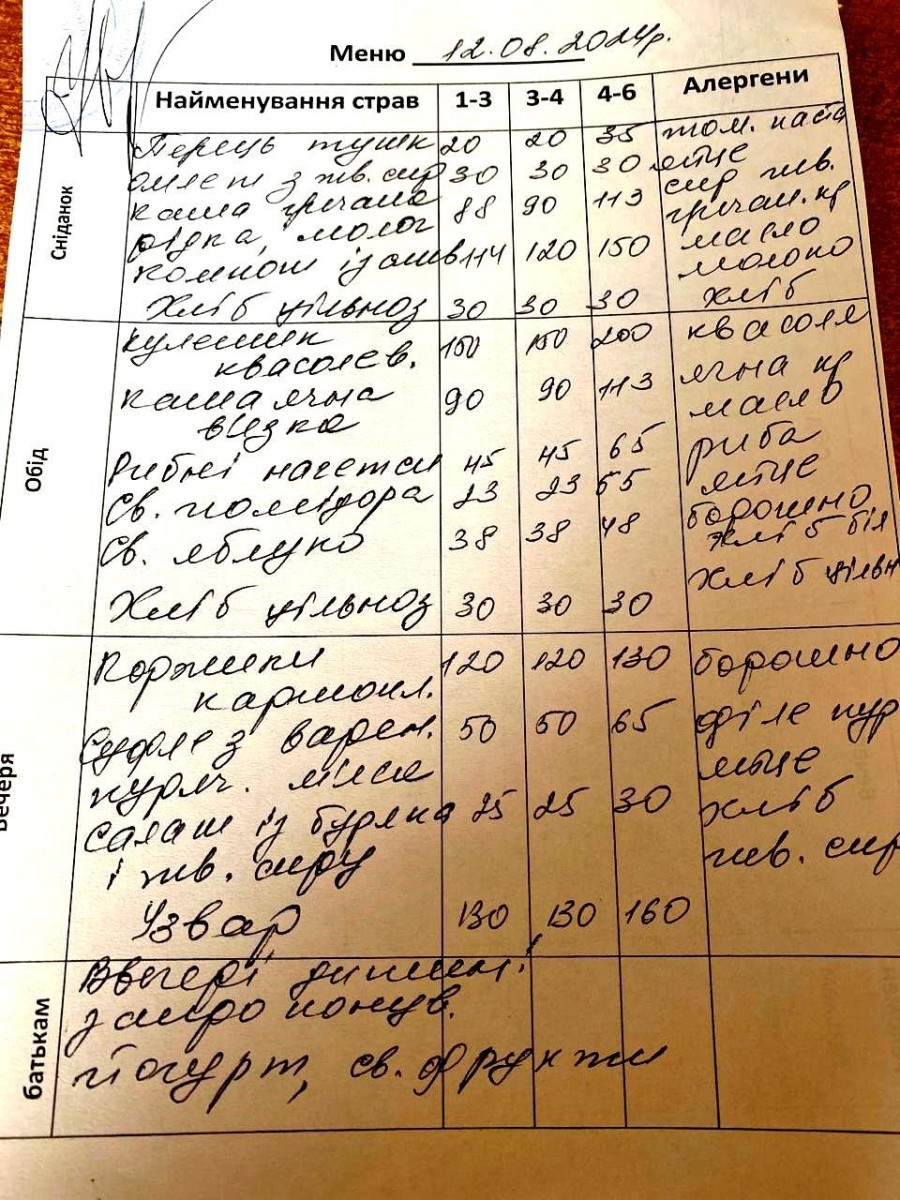 Меню 12.08.2024р.
Найменування страв 1-3 3-4 4-6 Алергени
Сніданок
Перець тушк 20 20 35 том. паста
омлет з тв. сир 30 30 30 яйце
каша гречана 88 90 113 сир тв.
рідка, молоч гречан. кр
компот із слив 114 120 150 масло
молоко
Хліб цільноз 30 30 30 хліб
Обід
кулешик 150 150 200 квасоля
квасолев.
каша ячна 90 90 113 ячна кр
в'язка масло
Рибні нагетси 45 45 65 риба
Св. помідора 23 23 55 яйце
Св. яблуко 38 38 48 борошно
хліб біл
хліб цільн
Хліб цільноз 30 30 30
Вечеря
Коржики 120 120 130 борошно
картопл.
Суфле з варен. 50 50 65 філе кур
куряч. м'яса яйце
Салат із буряка 25 25 30 хліб
і тв. сиру тв. сир
Узвар 130 130 160
батькам
Ввечері
йогурт, св. фрукти